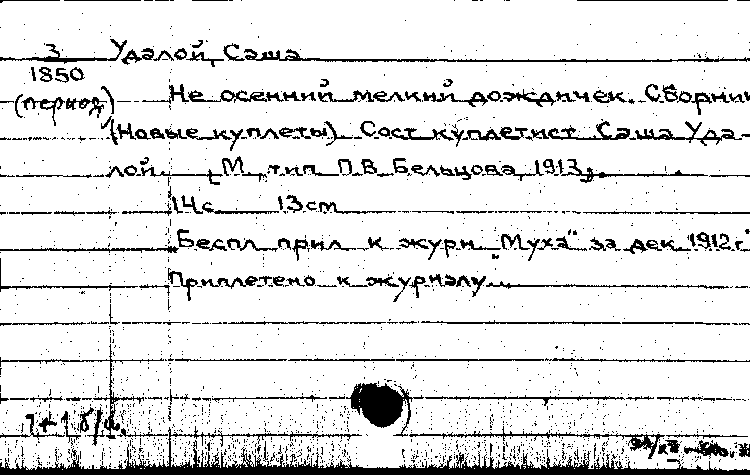 3 Удалой, Саша
1850
(период)
Не осенний мелкий дождичек. Сборник
(Новые куплеты). Сост куплетист Саша Уда-
лой. [М, тип П.В. Бельцова, 1913].
14с 13см
"Беспл прил к журн "Муха" за дек 1912г"
Приплетено к журналу...